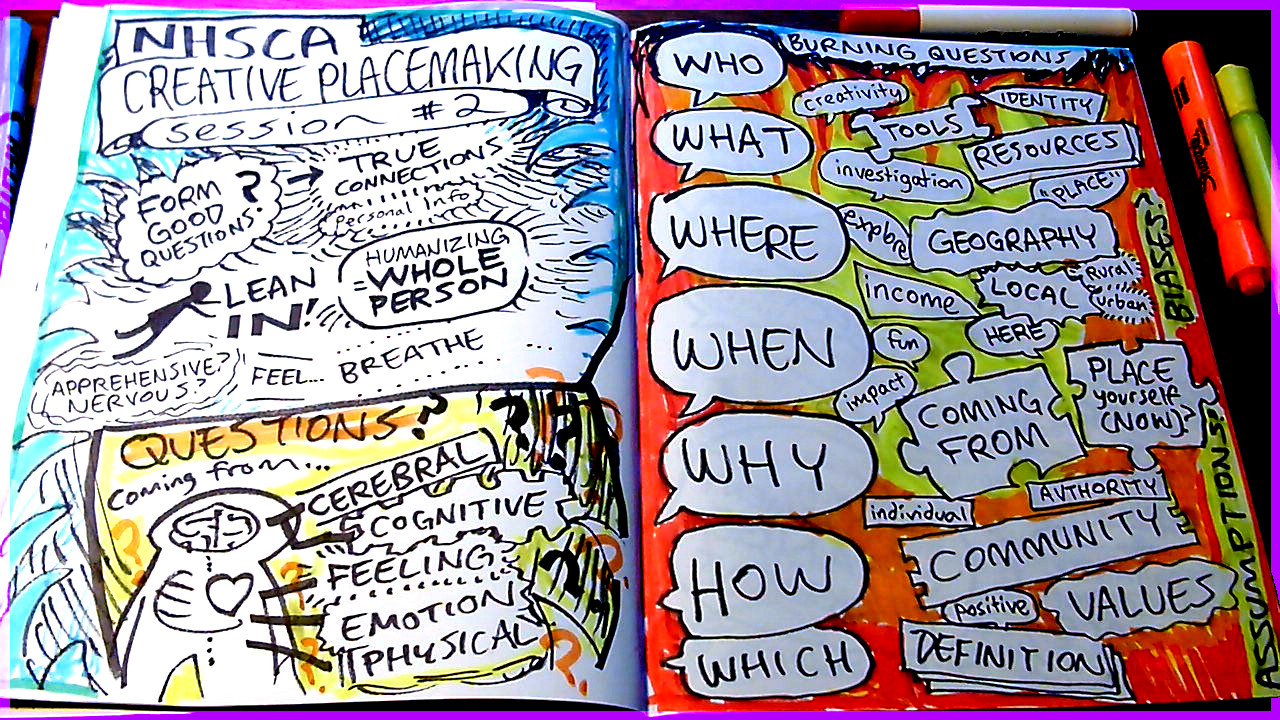 NHSCA
CREATIVE PLACEMAKING
session #2
FORM
GOOD
QUESTIONS?
?
TRUE
CONNECTIONS
Personal Info
HUMANIZING
=WHOLE
PERSON
LEAN
IN!
APPREHENSIVE?
NERVOUS?
FEEL...
BREATHE
QUESTIONS?
coming from...
CEREBRAL
COGNITIVE
FEELING
EMOTION
PHYSICAL
BURNING QUESTIONS
WHO
WHAT
WHERE
WHEN
WHY
HOW
WHICH
creativity
IDENTITY
TOOLS
RESOURCES
investigation
"PLACE"
explore
GEOGRAPHY
income
LOCAL
Rural
urban
fun
HERE
impact
COMING
FROM
PLACE
yourself
(NOW)?
individual
AUTHORITY
COMMUNITY
positive
VALUES
DEFINITION
BIASES?
ASSUMPTIONS?